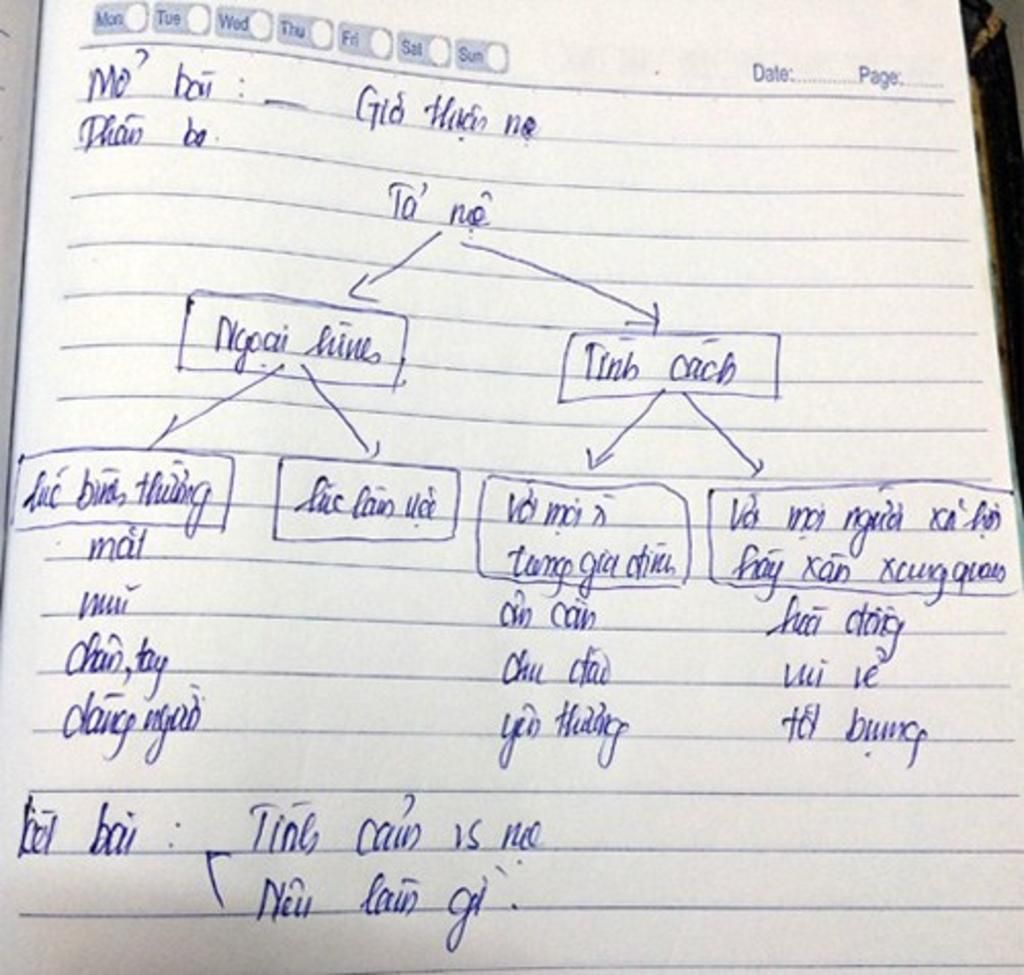 Mon Tue Wed Thu Fri Sat Sun
Date: Page:
Mở bài : — Giớ thiện mẹ
Thân bà.
Tả mẹ
Ngoại hình
Tính cách
lúc bình thường
lúc làm việc
Với mọi
trong gia đình
Với mọi người xã hội
hãy xân xcung quan
mắt
mũi
chân, tay
dáng người
ân cần
chu đáo
yên thương
hoà đồng
vui vẻ
tốt bụng
kết bài : Tình cảm vs mẹ
Nêu làm gì